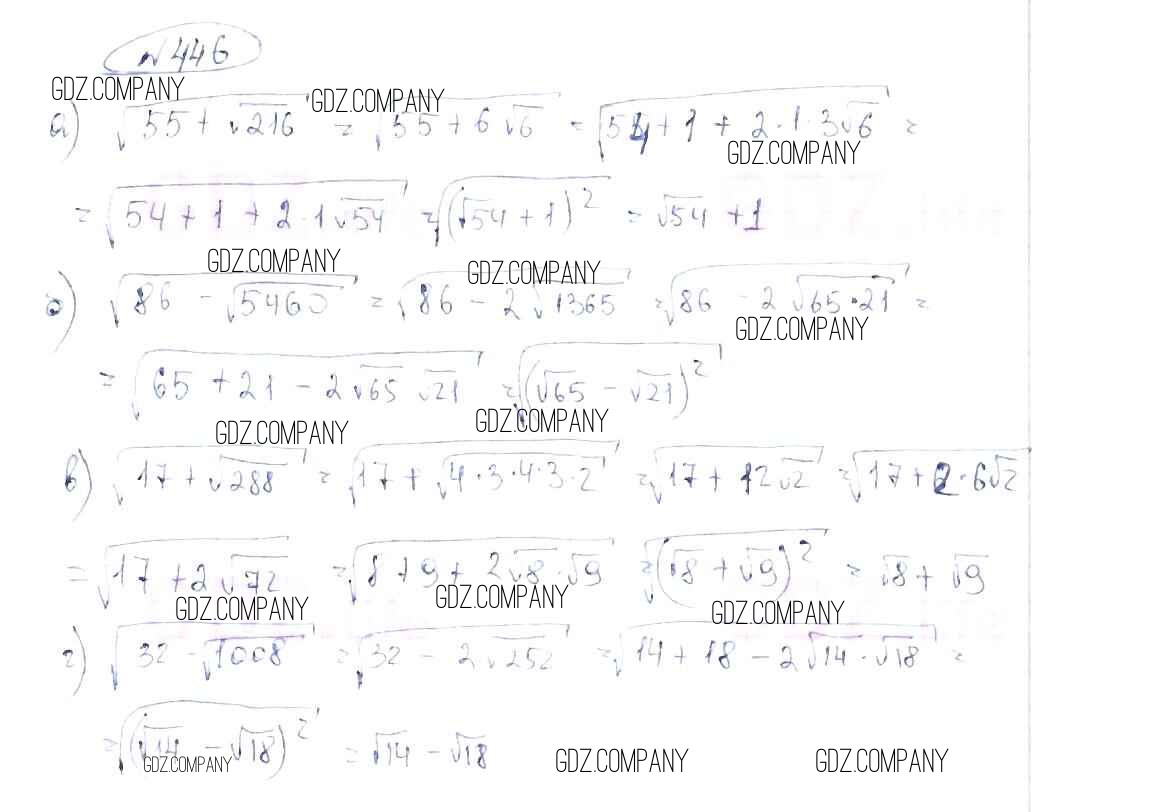 № 446
GDZ.COMPANY GDZ.COMPANY
а) √(55 + √216) = √(55 + 6√6) = √(54 + 1 + 2·1·3√6) =
GDZ.COMPANY
= √(54 + 1 + 2·1√54) = √((√54 + 1)²) = √54 + 1
GDZ.COMPANY GDZ.COMPANY
б) √(86 - √5460) = √(86 - 2√1365) = √(86 - 2√(65·21)) =
GDZ.COMPANY
= √(65 + 21 - 2√65 √21) = √((√65 - √21)²)
GDZ.COMPANY GDZ.COMPANY
в) √(17 + √288) = √(17 + √(4·3·4·3·2)) = √(17 + 12√2) = √(17 + 2·6√2)
= √(17 + 2√72) = √(8 + 9 + 2√8·√9) = √((√8 + √9)²) = √8 + √9
GDZ.COMPANY GDZ.COMPANY GDZ.COMPANY
г) √(32 - √1008) = √(32 - 2√252) = √(14 + 18 - 2√14·√18) =
= √((√14 - √18)²) = √14 - √18
GDZ.COMPANY GDZ.COMPANY GDZ.COMPANY